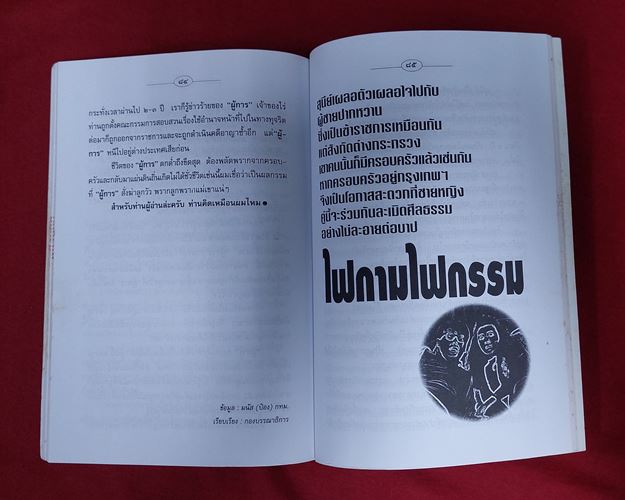 ๘๔
กระทั่งเวลาผ่านไป ๒-๓ ปี เราก็รู้ข่าวร้ายของ "ผู้การ" เจ้าของไร่
ท่านถูกตั้งคณะกรรมการสอบสวนเรื่องใช้อำนาจหน้าที่ไปในทางทุจริต
ต่อมาก็ถูกออกจากราชการและจะถูกดำเนินคดีอาญาซ้ำอีก แต่ "ผู้-
การ" หนีไปอยู่ต่างประเทศเสียก่อน
ชีวิตของ "ผู้การ" ตกต่ำถึงขีดสุด ต้องพลัดพรากจากครอบ-
ครัวและกลับมาแผ่นดินถิ่นเกิดไม่ได้ชั่วชีวิตเช่นนี้ผมเชื่อว่าเป็นผลกรรม
ที่ "ผู้การ" สั่งฆ่าลูกวัว พรากลูกพรากแม่เขาแน่ๆ
สำหรับท่านผู้อ่านล่ะครับ ท่านคิดเหมือนผมไหม
ข้อมูล : มนัส (ป๋อง) กทม.
เรียบเรียง : กองบรรณาธิการ
๘๕
สุนีย์เผลอตัวเผลอใจไปกับ
ผู้ชายปากหวาน
ซึ่งเป็นข้าราชการเหมือนกัน
แต่สังกัดต่างกระทรวง
เขาคนนั้นก็มีครอบครัวแล้วเช่นกัน
หากครอบครัวอยู่กรุงเทพฯ
จึงเป็นโอกาสสะดวกที่ชายหญิง
คู่นี้จะร่วมกันละเมิดศีลธรรม
อย่างไม่ละอายต่อบาป
ไฟกามไฟกรรม